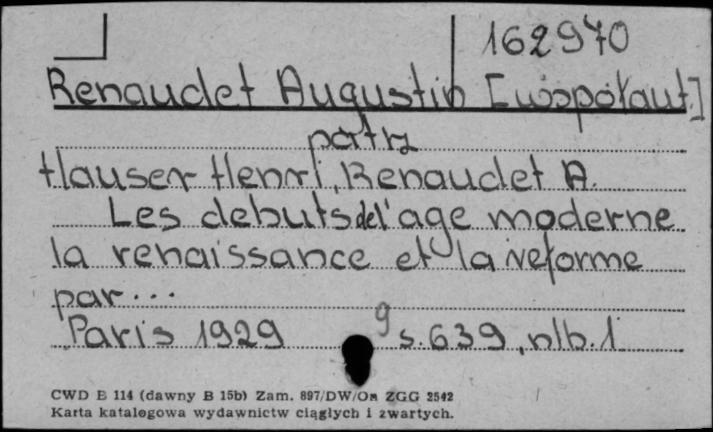 162970
Renaudet Augustin [współaut.]
patrz
Hauser Henri, Renaudet A.
Les debuts de l'age moderne
la renaissance et la reforme
par...
Paris 1929 s. 639, nlb. 1
9
CWD B 114 (dawny B 15b) Zam. 897/DW/Om ZGG 2542
Karta katalogowa wydawnictw ciągłych i zwartych.